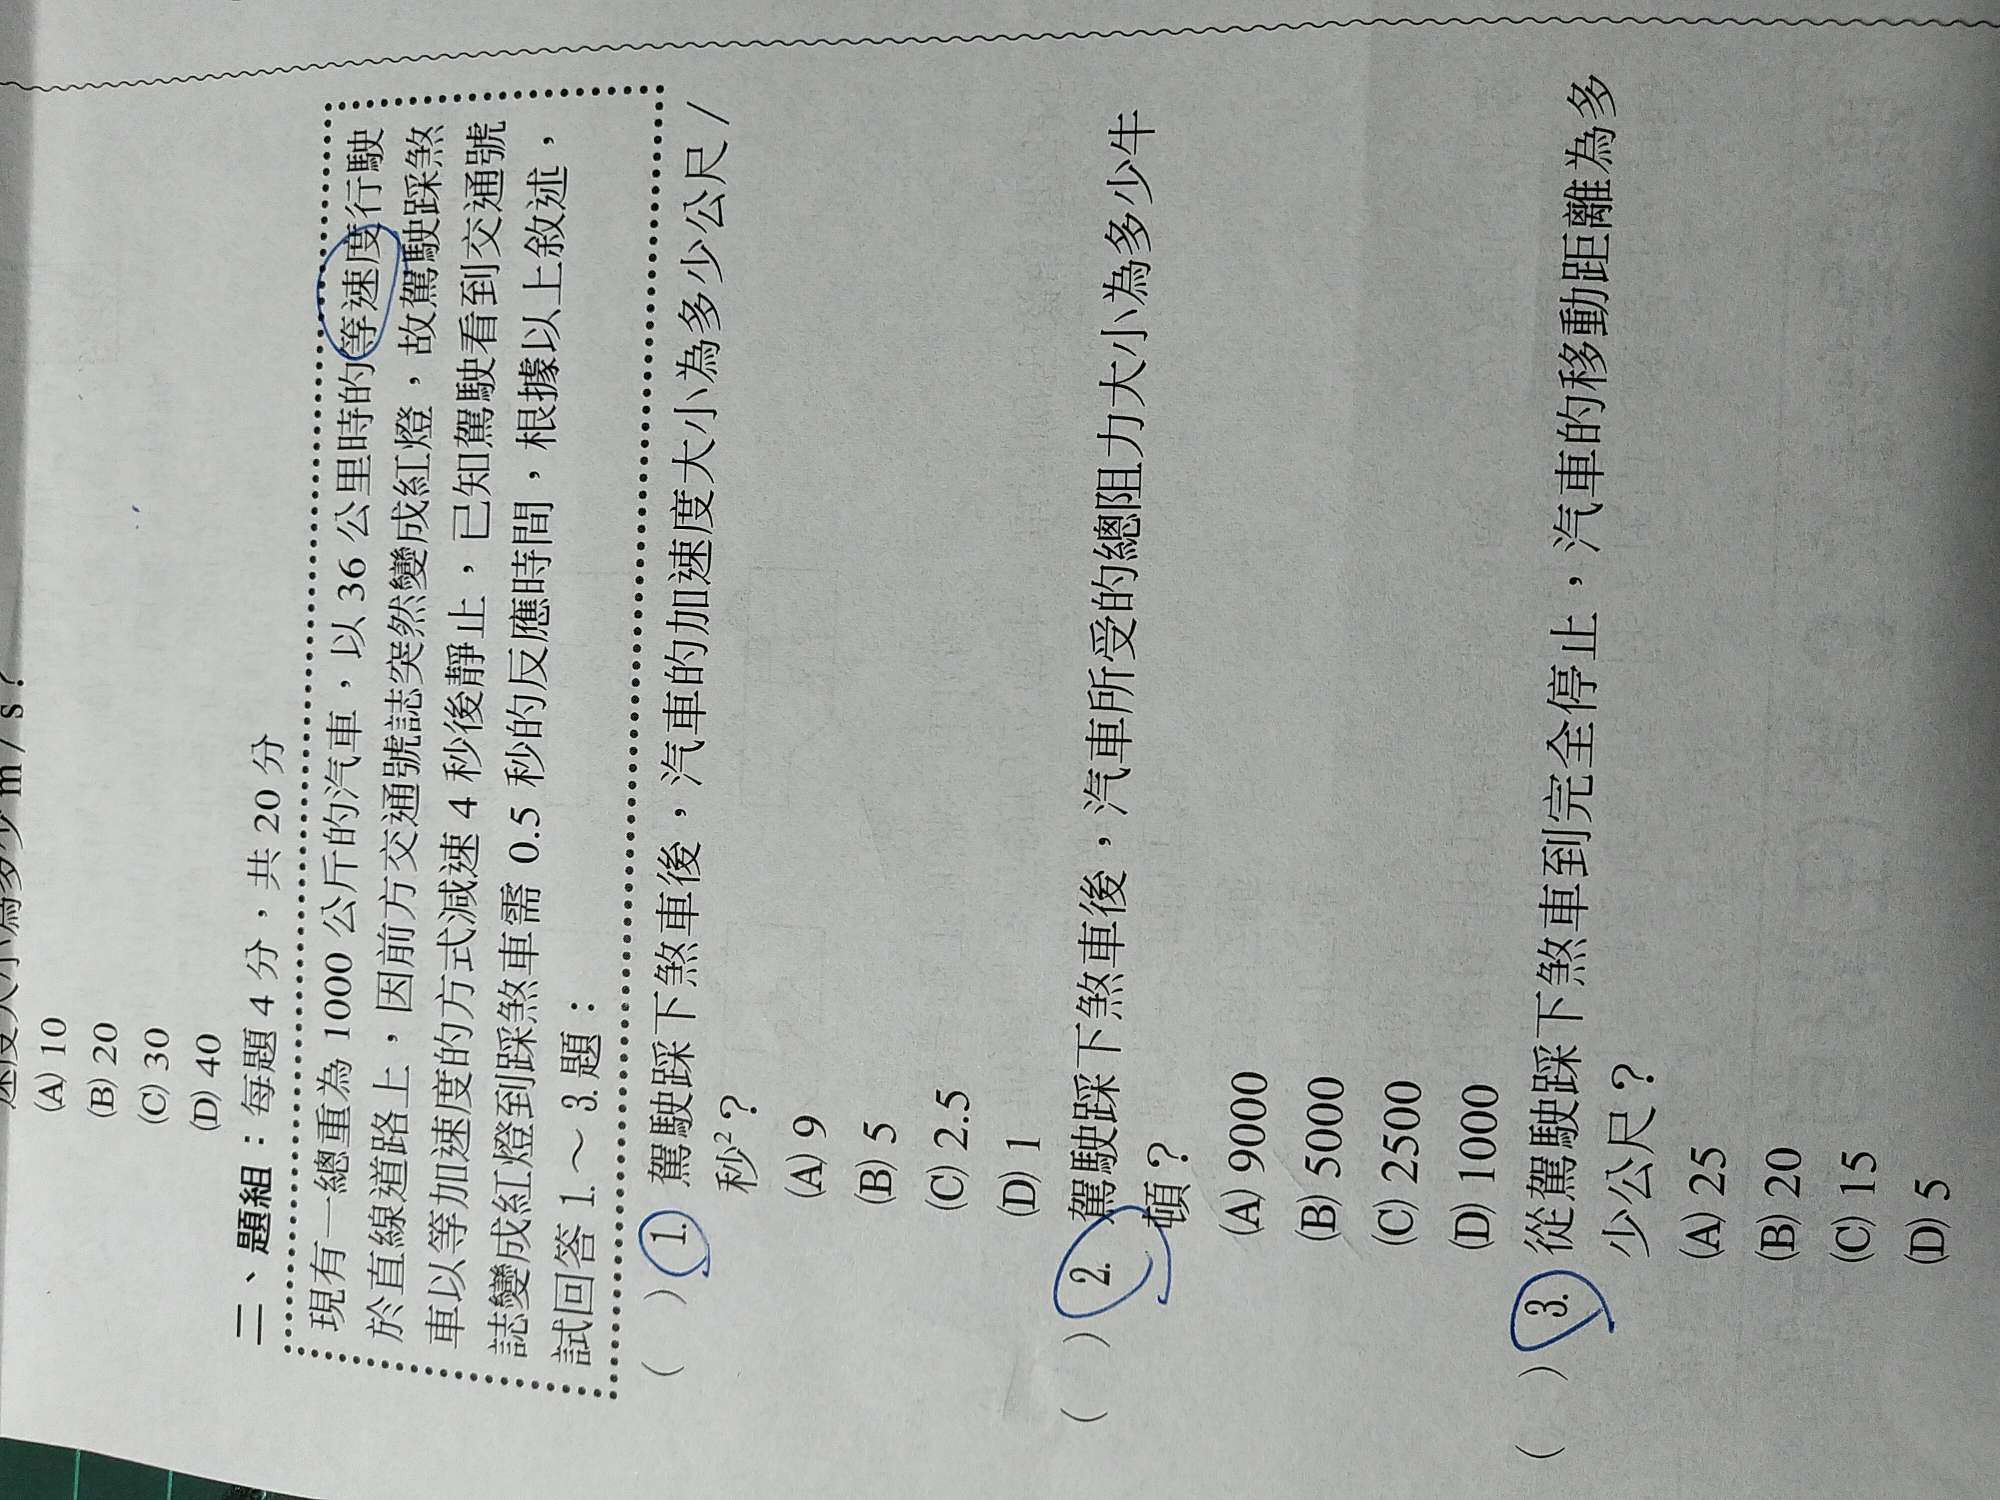 速度大小為多少 m / s？
(A) 10
(B) 20
(C) 30
(D) 40
二、題組：每題 4 分，共 20 分
現有一總重為 1000 公斤的汽車，以 36 公里時的等速度行駛
於直線道路上，因前方交通號誌突然變成紅燈，故駕駛踩煞
車以等加速度的方式減速 4 秒後靜止，已知駕駛看到交通號
誌變成紅燈到踩煞車需 0.5 秒的反應時間，根據以上敘述，
試回答 1. ～ 3. 題：
(　) 1. 駕駛踩下煞車後，汽車的加速度大小為多少公尺 /
秒²？
(A) 9
(B) 5
(C) 2.5
(D) 1
(　) 2. 駕駛踩下煞車後，汽車所受的總阻力大小為多少牛
頓？
(A) 9000
(B) 5000
(C) 2500
(D) 1000
(　) 3. 從駕駛踩下煞車到完全停止，汽車的移動距離為多
少公尺？
(A) 25
(B) 20
(C) 15
(D) 5